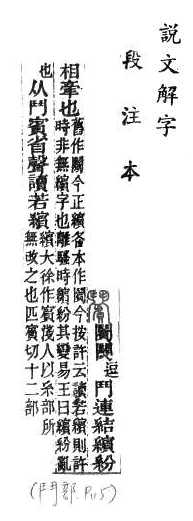 說文解字
段注本
逗鬥連結繽紛
相牽也舊作今正繽各本作今按許云讀若繽則許
時非無繽字也離騷時繽紛其變易王曰繽紛亂
也从鬥賓省聲讀若繽繽大徐作賓淺人以糸部所
無改之也匹賓切十二部
(鬥部 P.15)